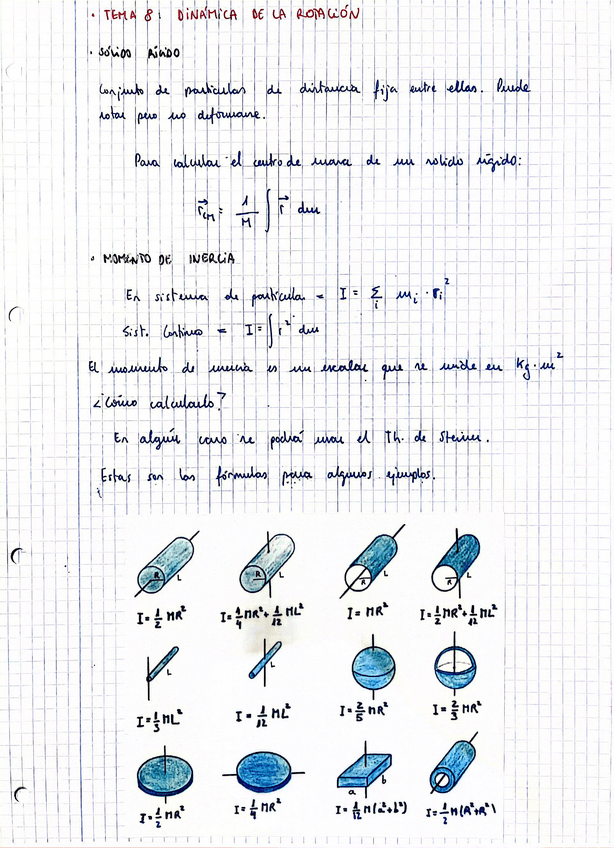 · TEMA 8: DINÁMICA DE LA ROTACIÓN
· SÓLIDO RÍGIDO
Conjunto de partículas de distancia fija entre ellas. Puede
rotar pero no deformarse.
Para calcular el centro de masa de un sólido rígido:
r⃗CM = 1/M ∫ r⃗ dm
· MOMENTO DE INERCIA
En sistema de partículas = I = Σi mi · ri²
Sist. Continuo = I = ∫ r² dm
El momento de inercia es un escalar que se mide en Kg·m²
¿Cómo calcularlo?
En algún caso se podrá usar el Th. de Steiner.
Estas son las fórmulas para algunos ejemplos.
R L R L R L R L
I = 1/2 MR² I = 1/4 MR² + 1/12 ML² I = MR² I = 1/2 MR² + 1/12 ML²
L L
I = 1/3 ML² I = 1/12 ML² I = 2/5 MR² I = 2/3 MR²
a b
I = 1/2 MR² I = 1/4 MR² I = 1/12 M(a²+b²) I = 1/2 M(R²+R²)